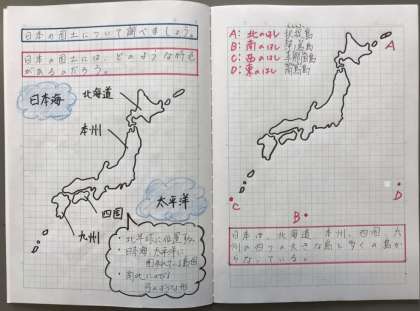 日本の国土について調べましょう。
日本の国土には、どのような特色
があるのだろう。
日本海
北海道
本州
太平洋
四国
九州
・北半球に位置する
・日本海、太平洋に
囲まれている島国
弓のような形
A:北のはし 択捉島
B:南のはし 沖ノ鳥島
C:西のはし 与那国島
D:東のはし 南鳥島
A
C
B
D
日本は、北海道、本州、四国、九
州の四つの大きな島と多くの島か
らなっている。